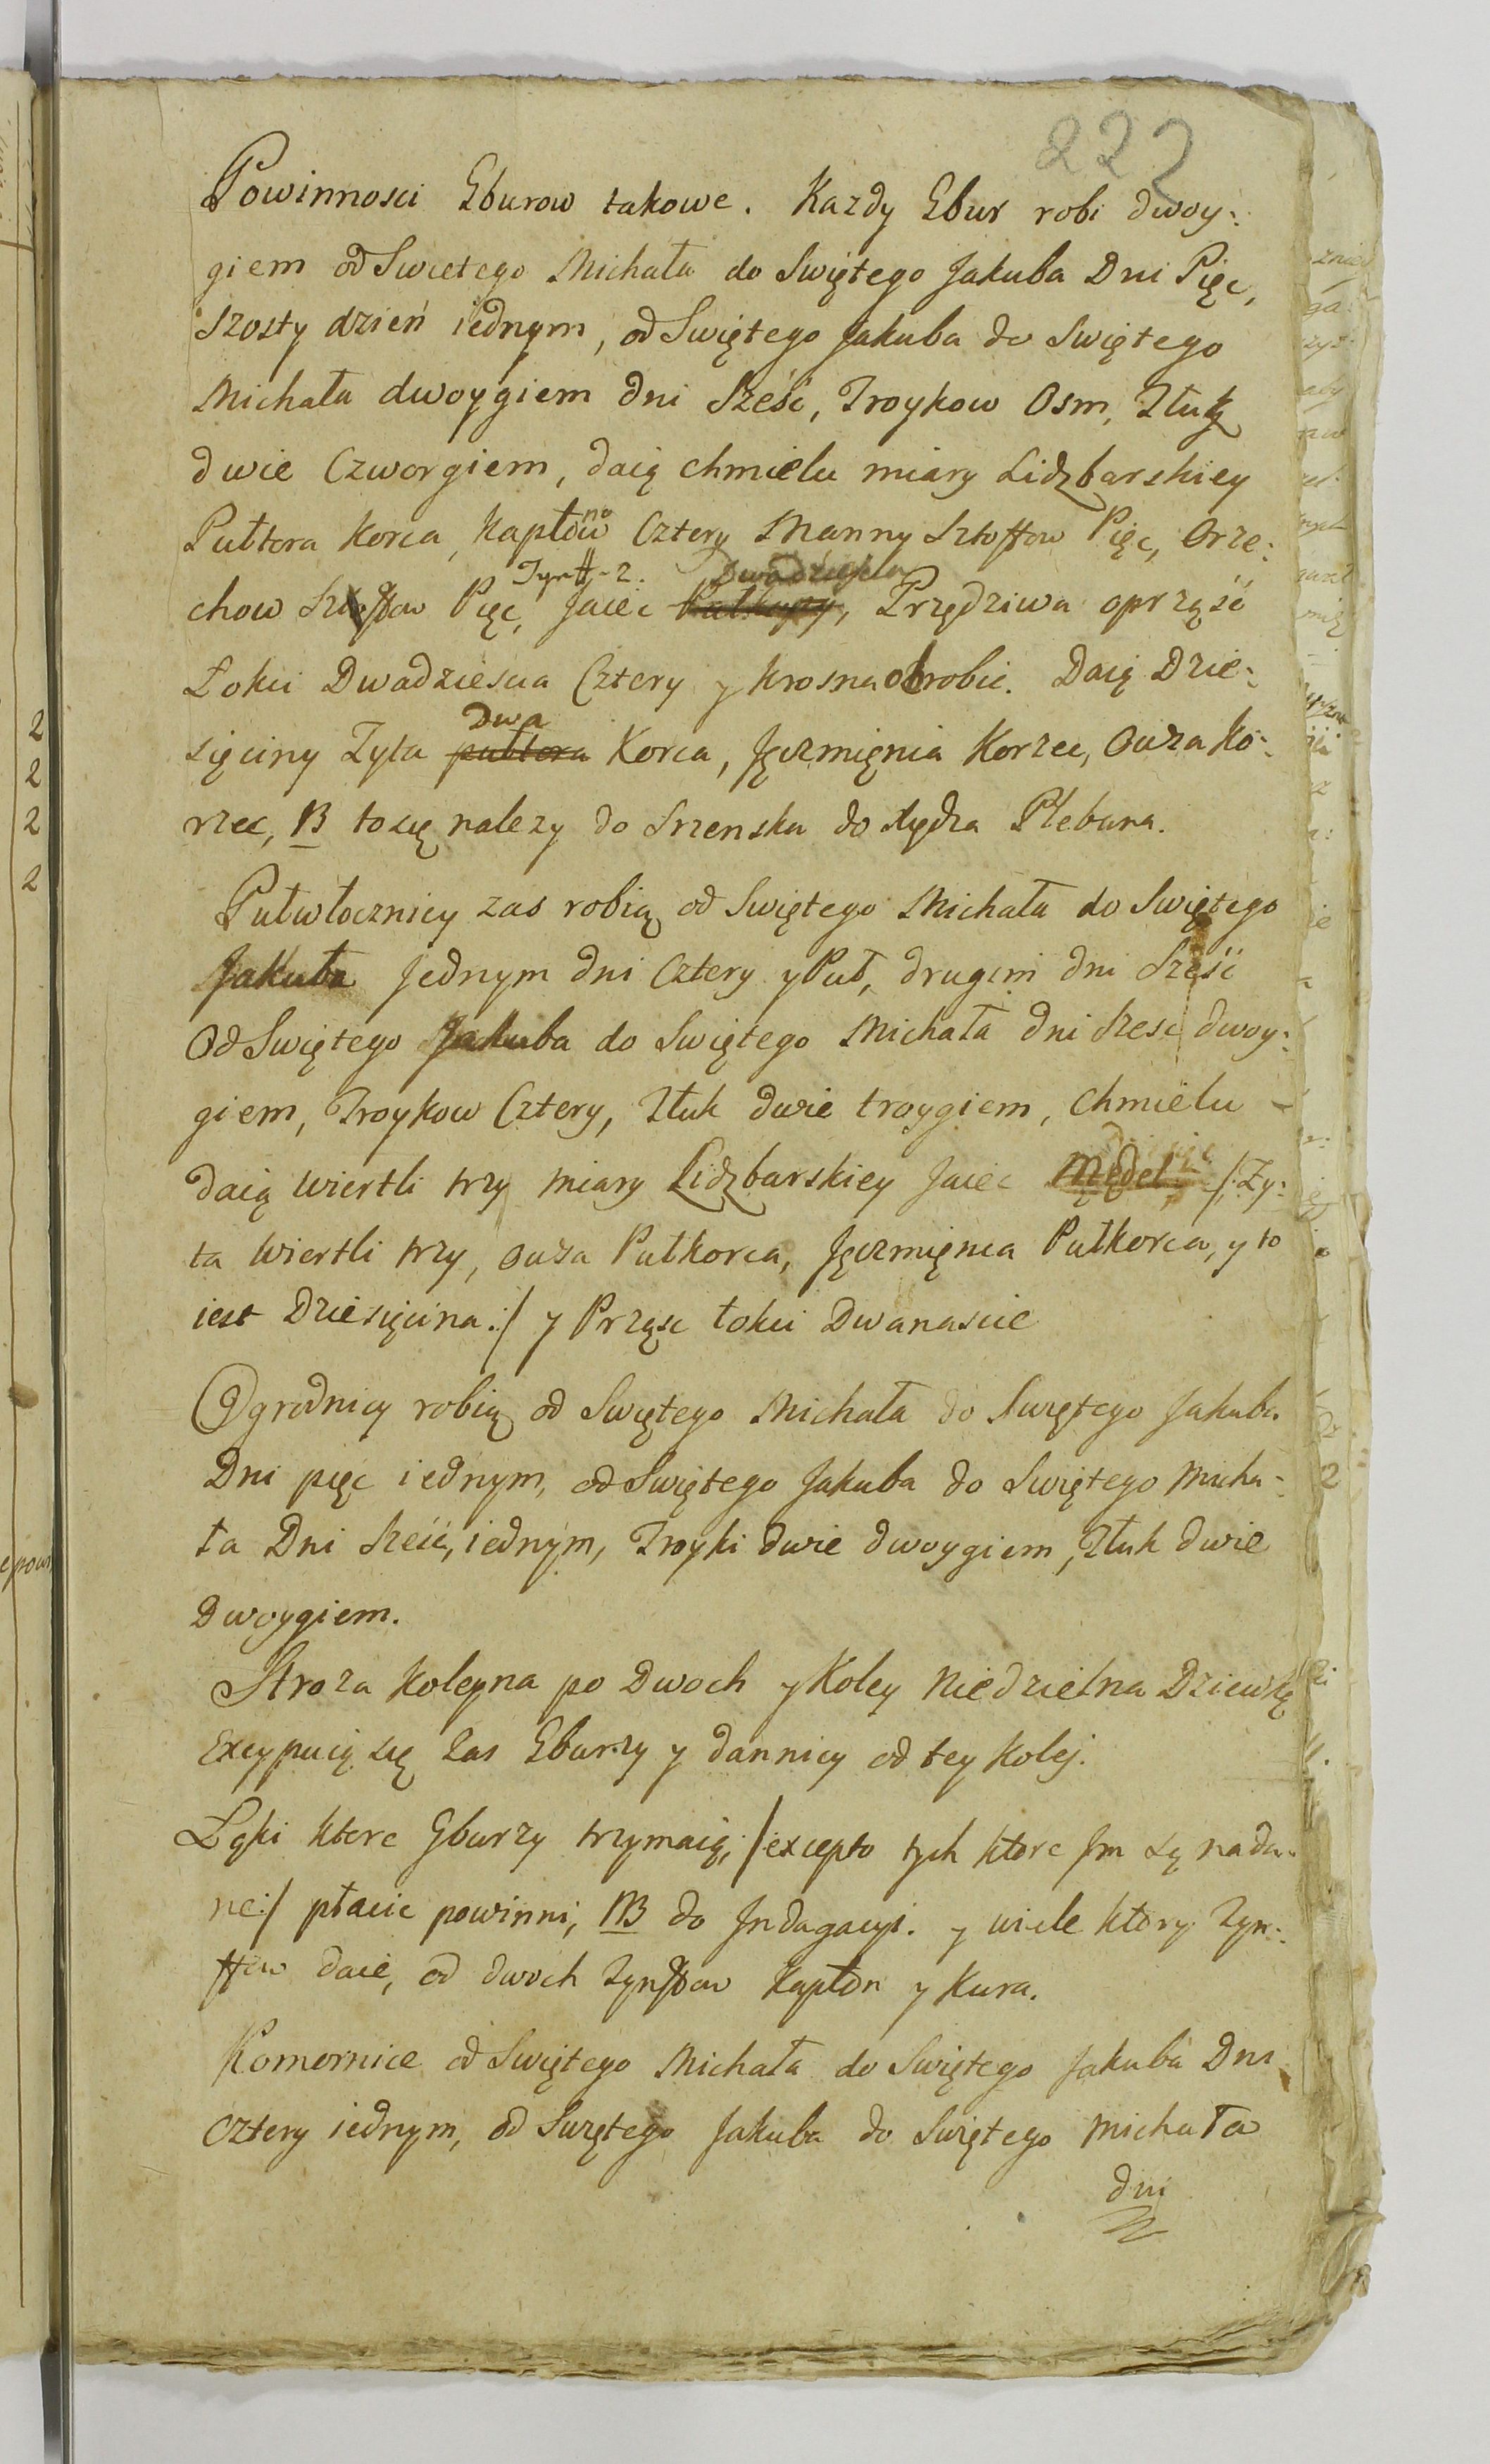 222
Powinnosci Gburow takowe. Kazdy Gbur robi dwoy:
giem od Swietego Michała do Swiętego Jakuba Dni Pięc,
Szosty dzień iednym, od Swiętego Jakuba do Swiętego
Michała dwoygiem dni Sześć, Troykow Osm, Tłuk
dwie Czworgiem, daią chmielu miary Lidzbarskiey
Pułtora Korca, Kapłonow Cztery Manny Sztoffow Pięc, Orze:
Tynff-2. Dwadziescia
chow Sztoffow Pięc, Jaiec Pułkopy, Przędziwa oprząść
Łokci Dwadziescia Cztery y krosna obrobic. Daią Dzie:
Dwa
sięciny Zyta pułtora Korca, Jęczmięnia Korzec, Owsa Ko:
rzec, NB to się nalezy do Szrenska do Xiędza Plebana.
Pułwłocznicy zas robią od Swiętego Michała do Swiętego
Jakuba Jednym dni Cztery y Puł, drugim dni Sześć
Od Swiętego Jakuba do Swiętego Michała dni Szesc dwoy:
giem, Troykow Cztery, Tłuk dwie troygiem, Chmielu
daią Wiertli trzy miary Lidzbarskiey Jaiec Mędel, /: Zy:
ta Wiertli trzy, Owsa Pułkorca, Jęczmięnia Pułkorca, y to
iest Dziesięcina :/ y Prząsc łokci Dwanascie
Ogrodnicy robią od Swiętego Michała do Swiętego Jakuba
Dni pięc iednym, od Swiętego Jakuba do Swiętego Micha:
ła Dni Sześć, iednym, Troyki dwie dwoygiem, Tłuk dwie
Dwoygiem.
Stroza koleyna po Dwoch y Koley Niedzielna Dziewką
Excypuią się zas Gburzy y dannicy od tey Kolej.
Łąki ktore Gburzy trzymaią, /: excepto tych ktore Jm są nada:
ne :/ płacic powinni, NB do Jndagacyi. y wiele ktory Tyn:
ffow daie, od dwoch Tynffow Kapłon y Kura.
Komornice od Swiętego Michała do Swiętego Jakuba Dni
Cztery iednym, od Swiętego Jakuba do Swiętego Michała
dni